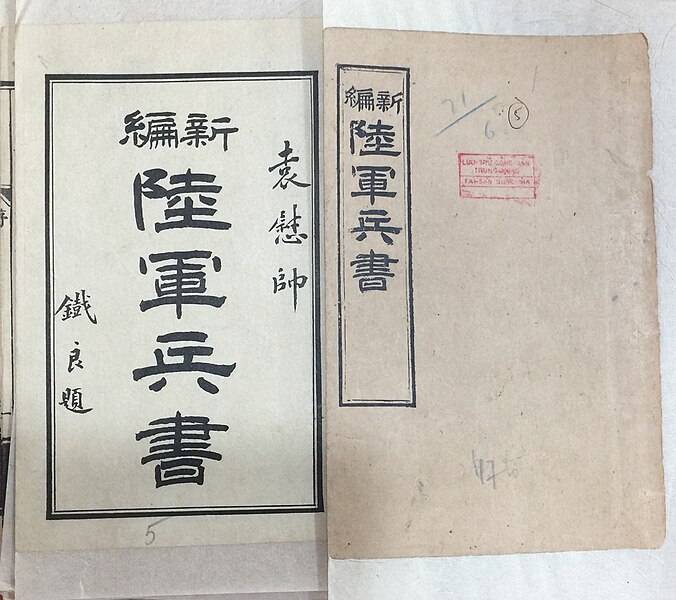 袁慰帥
新編
陸軍兵書
鐵良題
5
新編
陸軍兵書
21
6
5
LƯU-TRỮ CÔNG-VĂN
TRUNG-ƯƠNG
TÀI-SẢN QUỐC-GIA